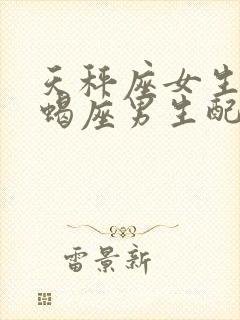 天秤座女生
蝎座男生配
雷景新